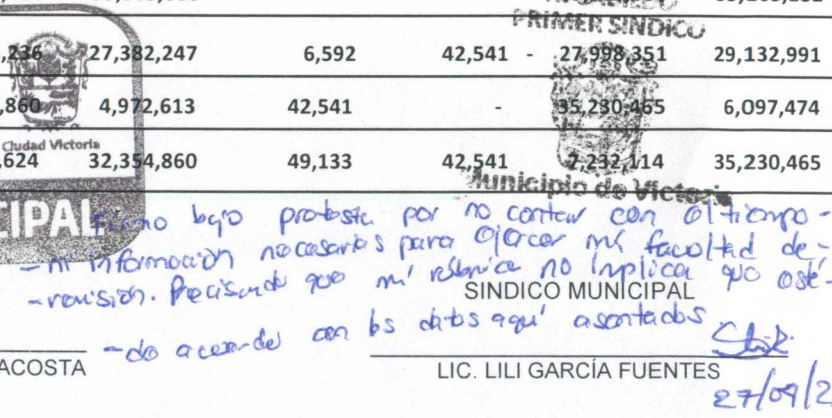 PRIMER SINDICO
,236 27,382,247 6,592 42,541 - 27,998,351 29,132,991
,860 4,972,613 42,541 - 35,230,465 6,097,474
Ciudad Victoria
,624 32,354,860 49,133 42,541 7,232,114 35,230,465
Municipio de Victoria
CIPAL
Firmo bajo protesta por no contar con el tiempo -
- ni información necesarios para ejercer mi facultad de -
- revisión. Precisando que mi rúbrica no implica que esté -
SINDICO MUNICIPAL
- de acuerdo con los datos aquí asentados
ACOSTA
LIC. LILI GARCÍA FUENTES
27/09/2